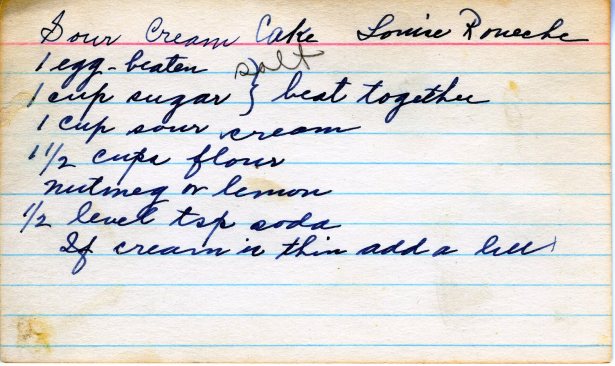 Sour Cream Cake Louise Roueche
1 egg-beaten
salt
1 cup sugar } beat together
1 cup sour cream
1 1/2 cups flour
nutmeg or lemon
1/2 level tsp soda
If cream is thin add a